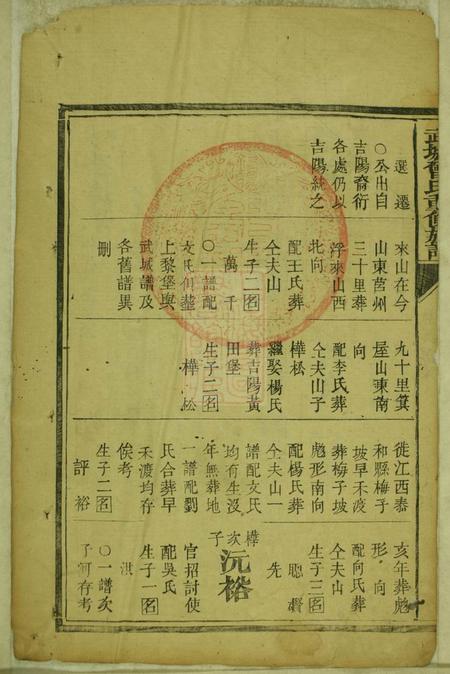 武城曾氏重修族譜
選遷
○公出自
吉陽裔衍
各處仍以
吉陽統之
來山在今
山東莒州
三十里葬
浮來山西
北向
配王氏葬
仝夫山
生子二名
萬千
○一譜配
文氏何葬
上黎堡與
武城譜及
各舊譜異
刪
九十里箕
屋山東南
向
配李氏葬
仝夫山子
樺松
繼娶楊氏
葬吉陽黃
田堡
生子二名
樺松
徙江西泰
和縣梅子
坡早禾渡
葬梅子坡
彪形南向
配楊氏葬
仝夫山一
譜配文氏
均有生沒
年無葬地
一譜配劉
氏合葬早
禾渡均存
俟考
生子二名
評裕
亥年葬彪
形向
配向氏葬
仝夫山
生子三名
聰
先
樺次子
沅裕
官招討使
配吳氏
生子一名
洪
○一譜次
子訶存考